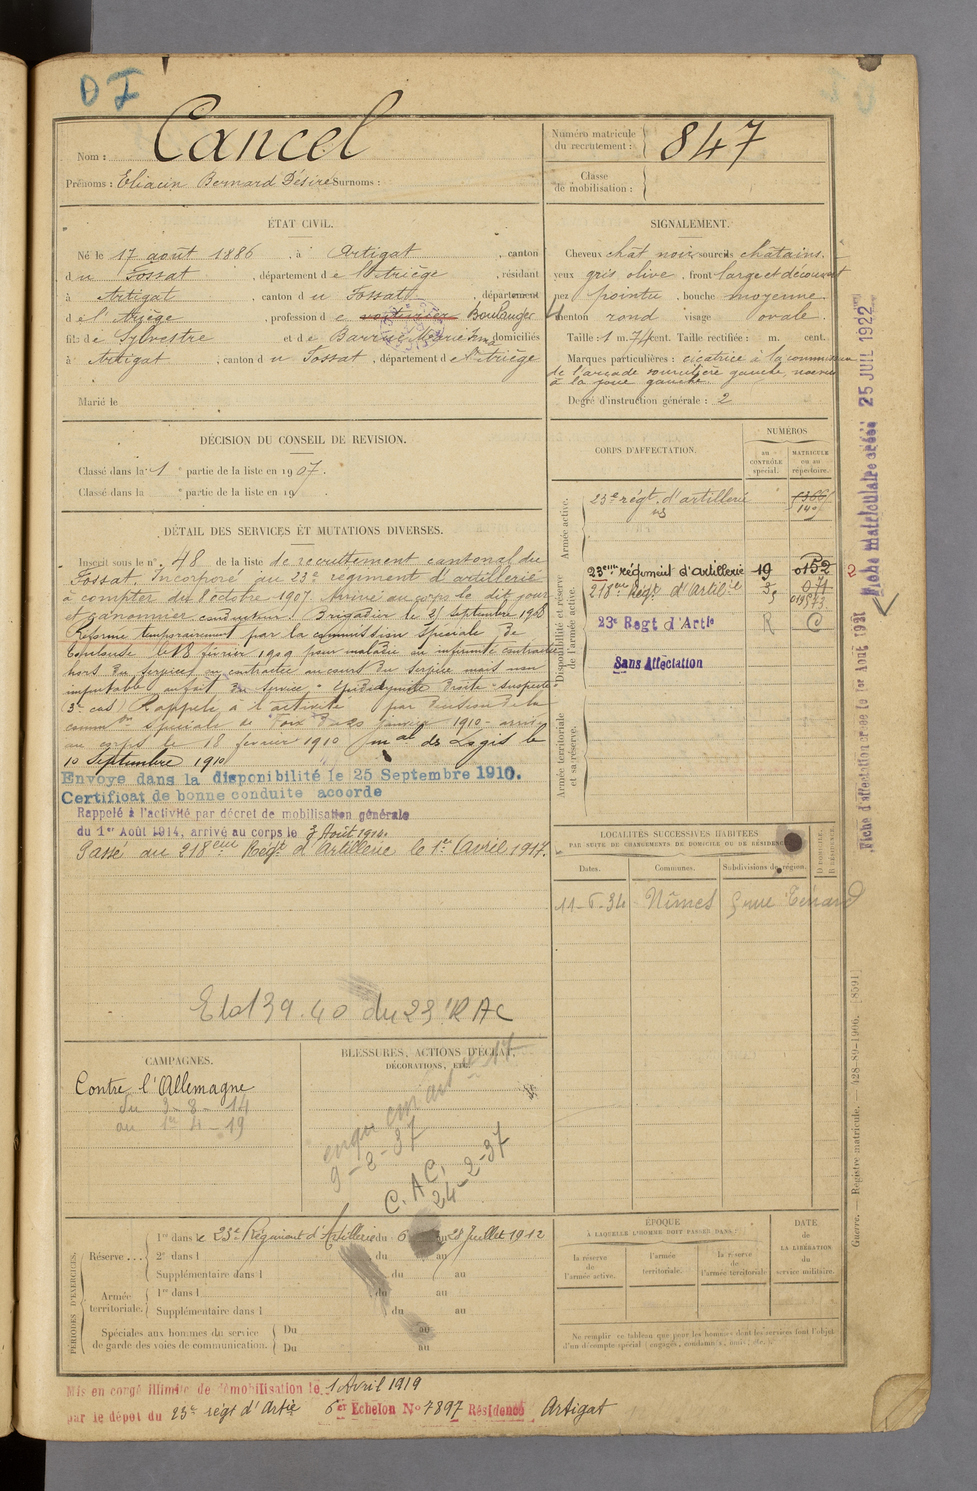 D I
Nom : Cancel
Prénoms : Eliacin Bernard Désiré Surnoms :
Numéro matricule du recrutement : 847
Classe de mobilisation :
ÉTAT CIVIL.
Né le 17 août 1886 , à Artigat , canton
du Fossat , département de l'Ariège , résidant
à Artigat , canton du Fossat , département
de l'Ariège , profession de Boulanger
fils de Sylvestre et de domiciliés
à Artigat , canton du Fossat , département de l'Ariège
Marié le
SIGNALEMENT.
Cheveux chât noir sourcils châtains.
yeux gris olive , front large et découvert
nez pointu , bouche moyenne.
menton rond visage ovale.
Taille : 1 m. 74 cent. Taille rectifiée : m. cent.
Marques particulières : cicatrice à la
de l'arcade sourcilière gauche,
à la joue gauche.
Degré d'instruction générale : 2
DÉCISION DU CONSEIL DE REVISION.
Classé dans la 1e partie de la liste en 1907.
Classé dans la e partie de la liste en 19
DÉTAIL DES SERVICES ET MUTATIONS DIVERSES.
Inscrit sous le n° 48 de la liste de recrutement cantonal du
Fossat. Incorporé au 23e régiment d'artillerie
à compter du 8 octobre 1907. Arrivé au corps le dit jour
et canonnier conducteur. Brigadier le 21 septembre 1908
Réformé temporairement par la commission spéciale de
Toulouse le 18 février 1909 pour maladie ou infirmité contractée
hors du service, ou contractée au cours du service mais non
imputable au fait du service "Epididymite droite suspecte"
3e cas) Rappelé à l'activité par décision de la
comm on spéciale de Foix du 20 janvier 1910 - arrivé
au corps le 18 février 1910 mal des Logis le
10 Septembre 1910
Envoyé dans la disponibilité le 25 Septembre 1910.
Certificat de bonne conduite accordé
Rappelé à l'activité par décret de mobilisation générale
du 1er Août 1914, arrivé au corps le 3 Août 1914.
Passé au 218ème Régt d'Artillerie le 1er Avril 1917.
39.40 du 23 RAC
CORPS D'AFFECTATION.
NUMÉROS
au CONTRÔLE spécial.
MATRICULE ou au répertoire.
Armée active.
23e régt. d'artillerie
Disponibilité et réserve de l'armée active.
23eme régiment d'artillerie 19 0152
218eme Régt d'Artilie
23e Regt d'Artie R C
Sans Affectation
Armée territoriale et sa réserve.
LOCALITÉS SUCCESSIVES HABITÉES
PAR SUITE DE CHANGEMENTS DE DOMICILE OU DE RÉSIDENCE
Dates. Communes. Subdivisions de région. D DOMICILE. R RÉSIDENCE.
11-6-34 Nîmes
CAMPAGNES.
Contre l'Allemagne
du 3-8-14
au 1er 4-19
BLESSURES, ACTIONS D'ÉCLAT,
DÉCORATIONS, ETC.
9-2-37
C.A.C.
24-2-37
PÉRIODES D'EXERCICES.
Réserve... 1re dans le 23e Régiment d'Artillerie du 6 au 28 Juillet 1912
2e dans l du au
Supplémentaire dans l du au
Armée territoriale. 1re dans l du au
Supplémentaire dans l du au
Spéciales aux hommes du service de garde des voies de communication. Du au
Du au
ÉPOQUE
À LAQUELLE L'HOMME DOIT PASSER DANS :
la réserve de l'armée active.
l'armée territoriale.
la réserve de l'armée territoriale
DATE de LA LIBÉRATION du service militaire.
Ne remplir ce tableau que pour les hommes dont les services font l'objet
d'un décompte spécial (engagés, condamnés, omis, etc.)
Mis en congé illimité de démobilisation le 1 Avril 1919
par le dépôt du 23e régt d'Artie 6e Echelon No 7897 Résidence Artigat
Fiche matriculaire créée 25 JUIL 1922
Fiche d'affectation créée le 1er Août 1921
Guerre. — Registre matricule. — 428-80-1906. [8591]